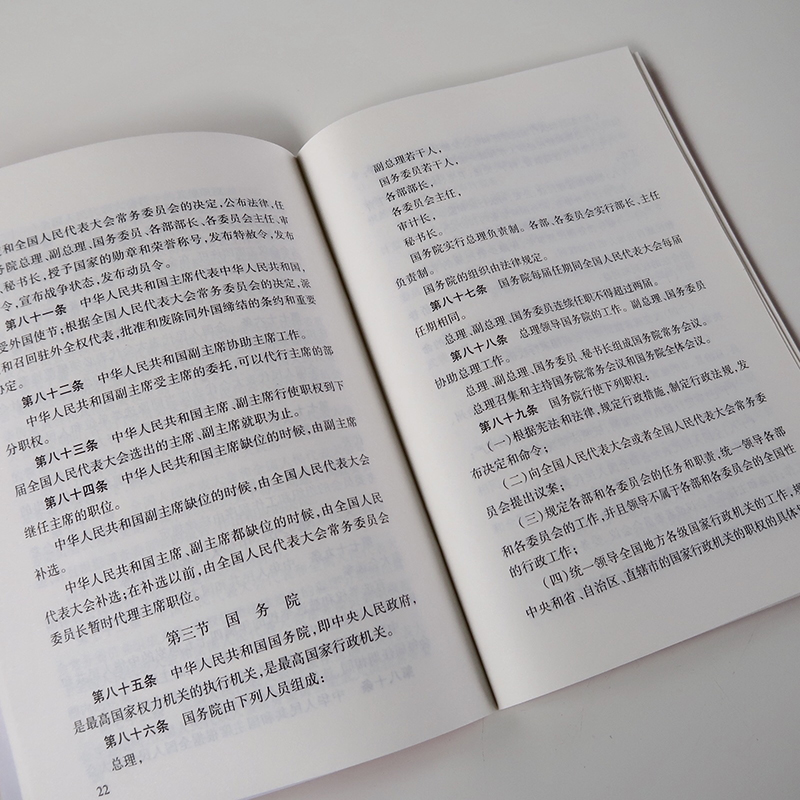 和全国人民代表大会常务委员会的决定，公布法律，任
务院总理、副总理、国务委员、各部部长、各委员会主任、审
、秘书长，授予国家的勋章和荣誉称号，发布特赦令，发布
令，宣布战争状态，发布动员令。
第八十一条 中华人民共和国主席代表中华人民共和国，
受外国使节；根据全国人民代表大会常务委员会的决定，派
和召回驻外全权代表，批准和废除同外国缔结的条约和重要
定。
第八十二条 中华人民共和国副主席协助主席工作。
中华人民共和国副主席受主席的委托，可以代行主席的部
分职权。
第八十三条 中华人民共和国主席、副主席行使职权到下
届全国人民代表大会选出的主席、副主席就职为止。
第八十四条 中华人民共和国主席缺位的时候，由副主席
继任主席的职位。
中华人民共和国副主席缺位的时候，由全国人民代表大会
补选。
中华人民共和国主席、副主席都缺位的时候，由全国人民
代表大会补选；在补选以前，由全国人民代表大会常务委员会
委员长暂时代理主席职位。
第三节 国务院
第八十五条 中华人民共和国国务院，即中央人民政府，
是最高国家权力机关的执行机关，是最高国家行政机关。
第八十六条 国务院由下列人员组成：
总理，
22
副总理若干人，
国务委员若干人，
各部部长，
各委员会主任，
审计长，
秘书长。
国务院实行总理负责制。各部、各委员会实行部长、主任
负责制。
国务院的组织由法律规定。
第八十七条 国务院每届任期同全国人民代表大会每届
任期相同。
总理、副总理、国务委员连续任职不得超过两届。
第八十八条 总理领导国务院的工作。副总理、国务委员
协助总理工作。
总理、副总理、国务委员、秘书长组成国务院常务会议。
总理召集和主持国务院常务会议和国务院全体会议。
第八十九条 国务院行使下列职权：
（一）根据宪法和法律，规定行政措施，制定行政法规，发
布决定和命令；
（二）向全国人民代表大会或者全国人民代表大会常务委
员会提出议案；
（三）规定各部和各委员会的任务和职责，统一领导各部
和各委员会的工作，并且领导不属于各部和各委员会的全国性
的行政工作；
（四）统一领导全国地方各级国家行政机关的工作，规
中央和省、自治区、直辖市的国家行政机关的职权的具体